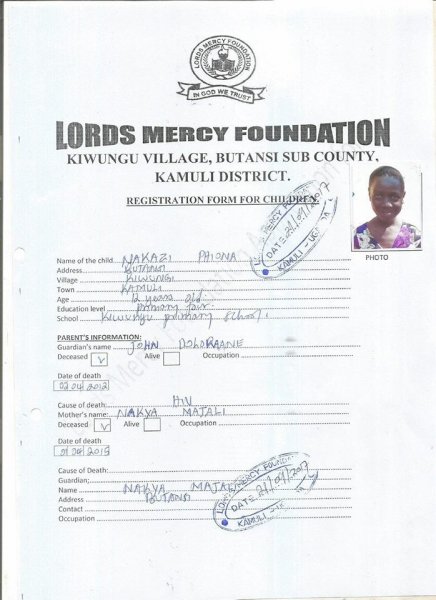 LORDS MERCY FOUNDATION
IN GOD WE TRUST
LORDS MERCY FOUNDATION
KIWUNGU VILLAGE, BUTANSI SUB COUNTY,
KAMULI DISTRICT.
REGISTRATION FORM FOR CHILDREN.
PHOTO
LORDS MERCY FOUNDATION
DATE
KAMULI - UGANDA
Name of the child NAKAZI PHIONA
Address BUTANSI
Village KIWUNGI
Town KAMULI
Age 12 years old
Education level primary
School Kiwungu primary school.
PARENT'S INFORMATION:
Guardian's name JOHN
Deceased ✓ Alive Occupation
Date of death
02/04/2012
Cause of death: HIV
Mother's name: NAKYA MAJALI
Deceased ✓ Alive Occupation
Date of death
Cause of Death:
Guardian;
Name NAKYA MAJALI
Address BUTANSI
Contact
Occupation
LORDS MERCY FOUNDATION
DATE
KAMULI